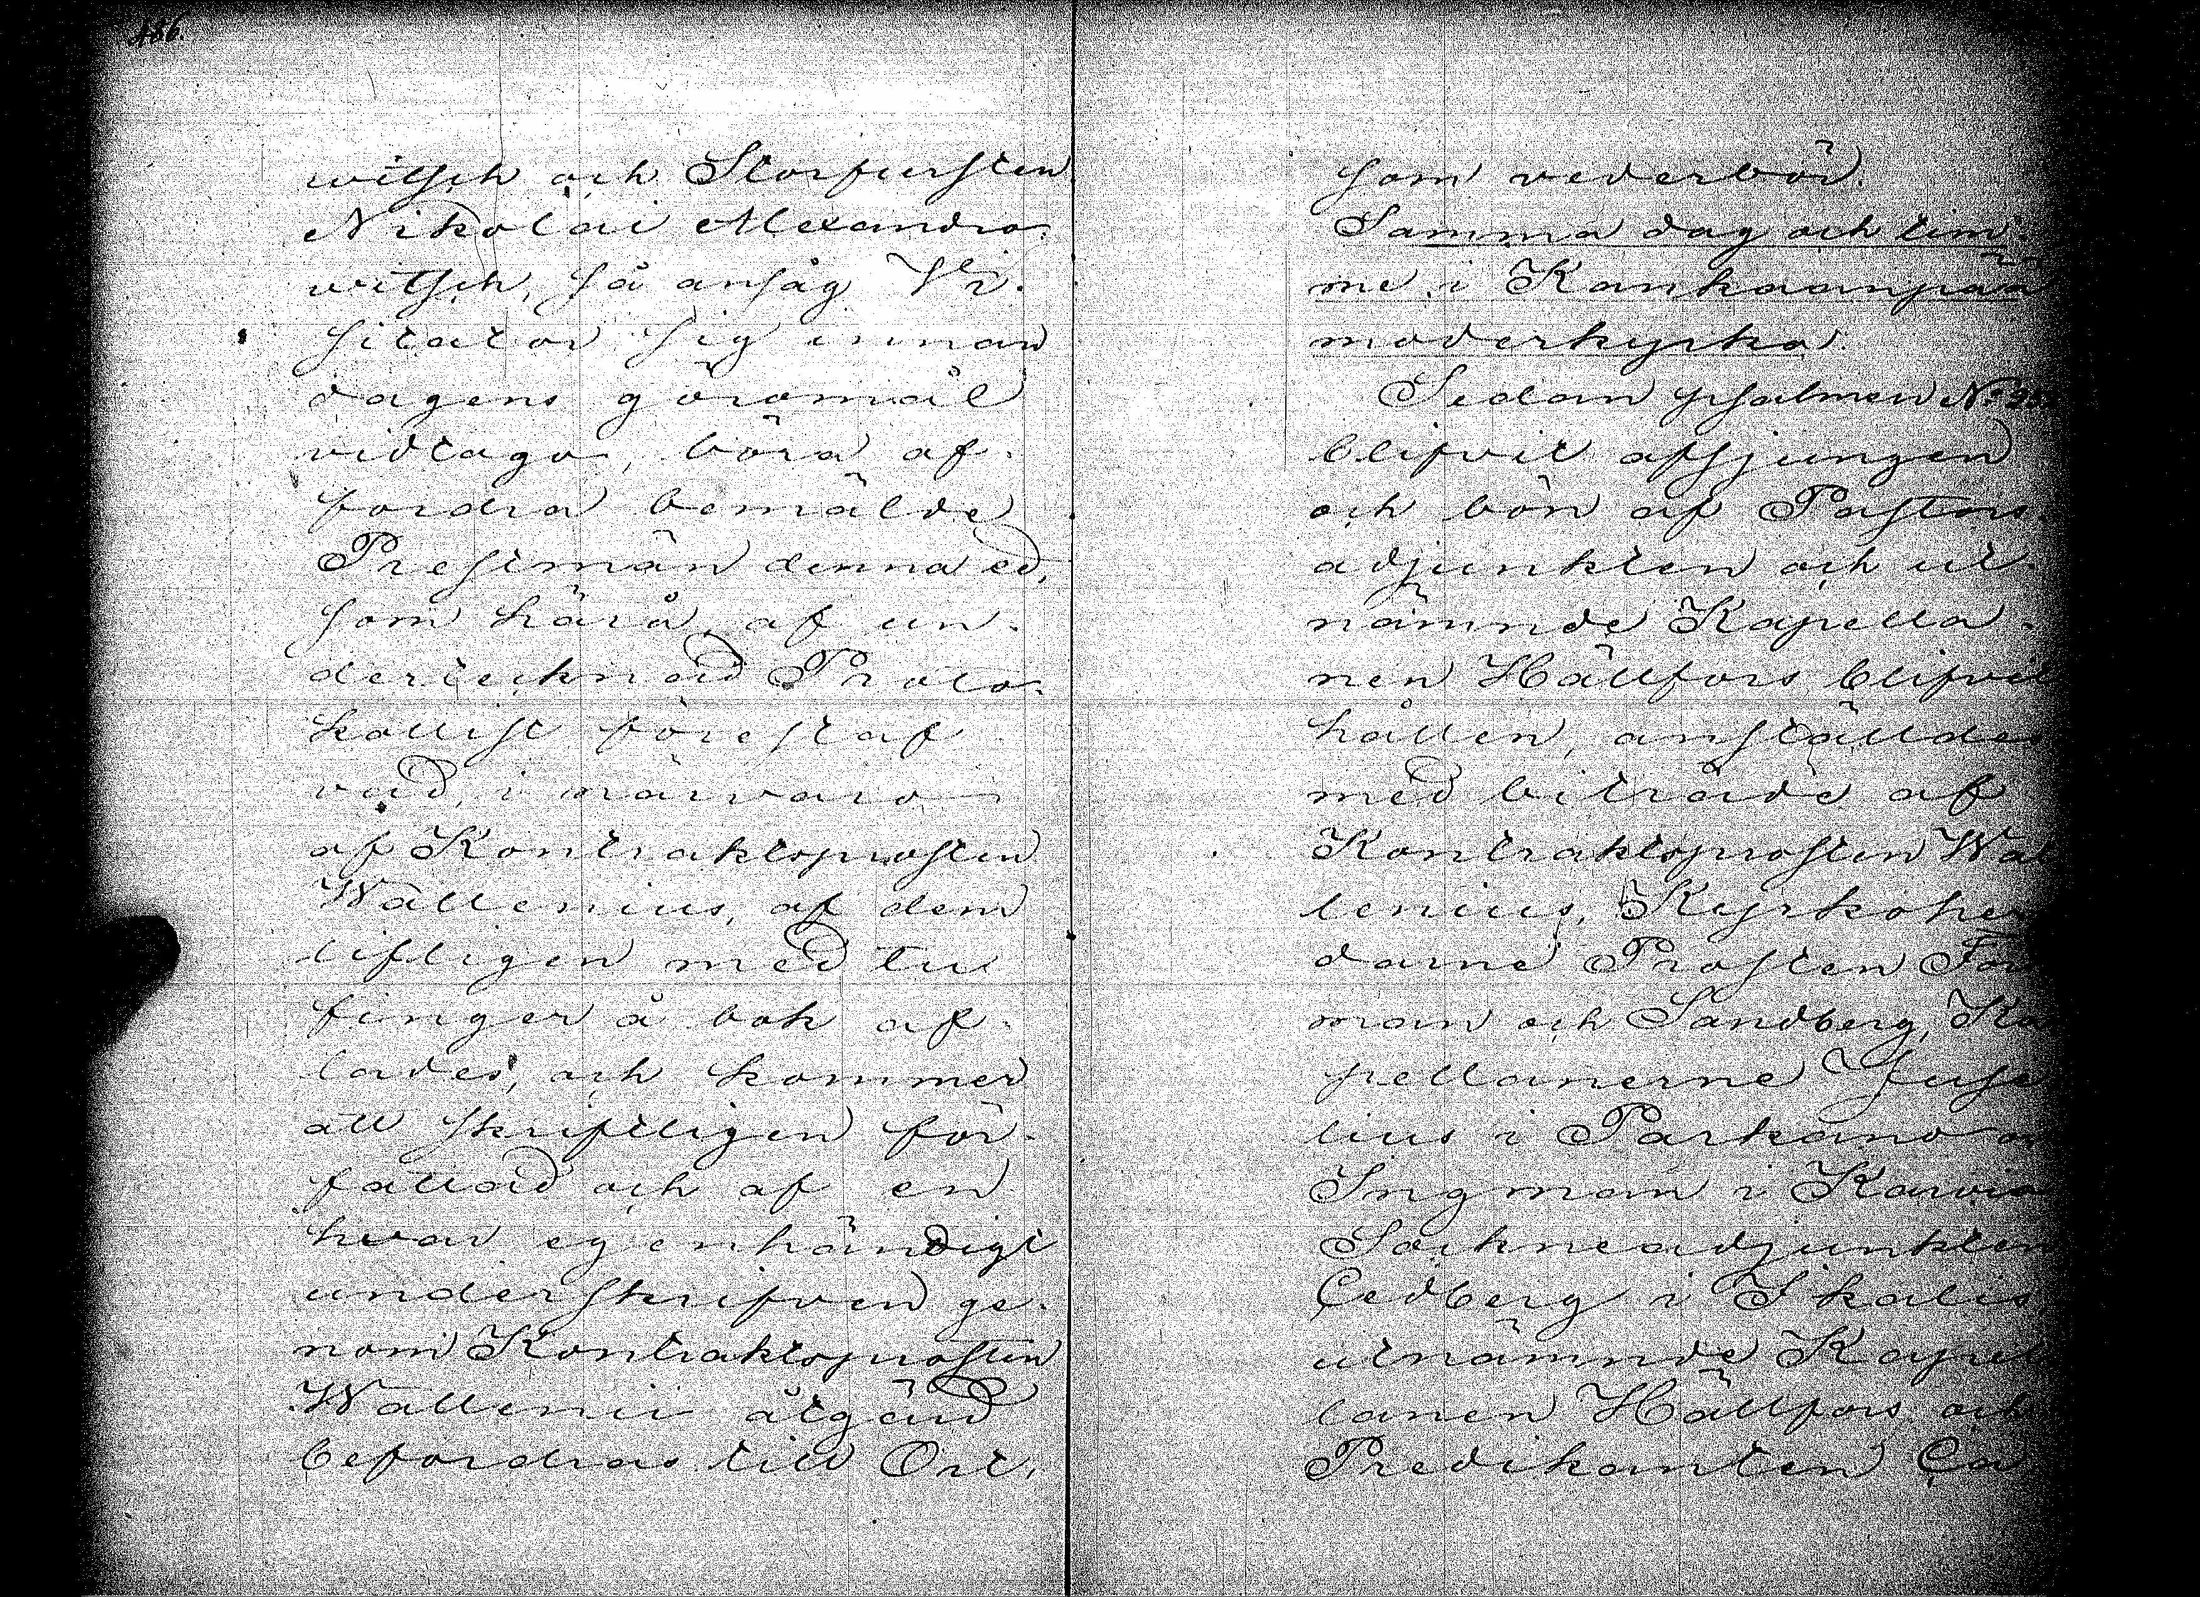 486.
witsch och Storfursten
Nikolai Alexandro-
witsch, så ansåg Vi-
sitator sig innan
dagens göromål
vidtaga, böra af-
fordra bemälde
Prestmän denna ed,
som härå, af un-
dertecknad Proto-
kollist förestaf
vad, i närvaro
af Kontraktsprosten
Wallenius, af dem
lifligen med tu
finger å bok af-
lades, och kommer
att skriftligen för-
fattad och af en
hvar egenhändigt
underskrifven ge-
nom Kontraktsprosten
Wallenii åtgärd
befordras till Ort,
som vederbör.
Samma dag och tim-
me i Kankaanpää
moderkyrka.
Sedan psalmen N:o
blifvit afsjungen
och bön af Pastors-
adjunkten och ut-
nämnde Kapella-
nen Hällfors blifvit
hållen, anställdes
med biträde af
Kontraktsprosten Wal
lenius, Kyrkoher
darne Prosten For
man och Sandberg, Ka
pellanerne
lius i Parkano
Ingman i Karvia
Sockneadjunkten
Cedberg i Ikalis,
utnämnde Kapel
lanen Hällfors och
Predikanten Ca